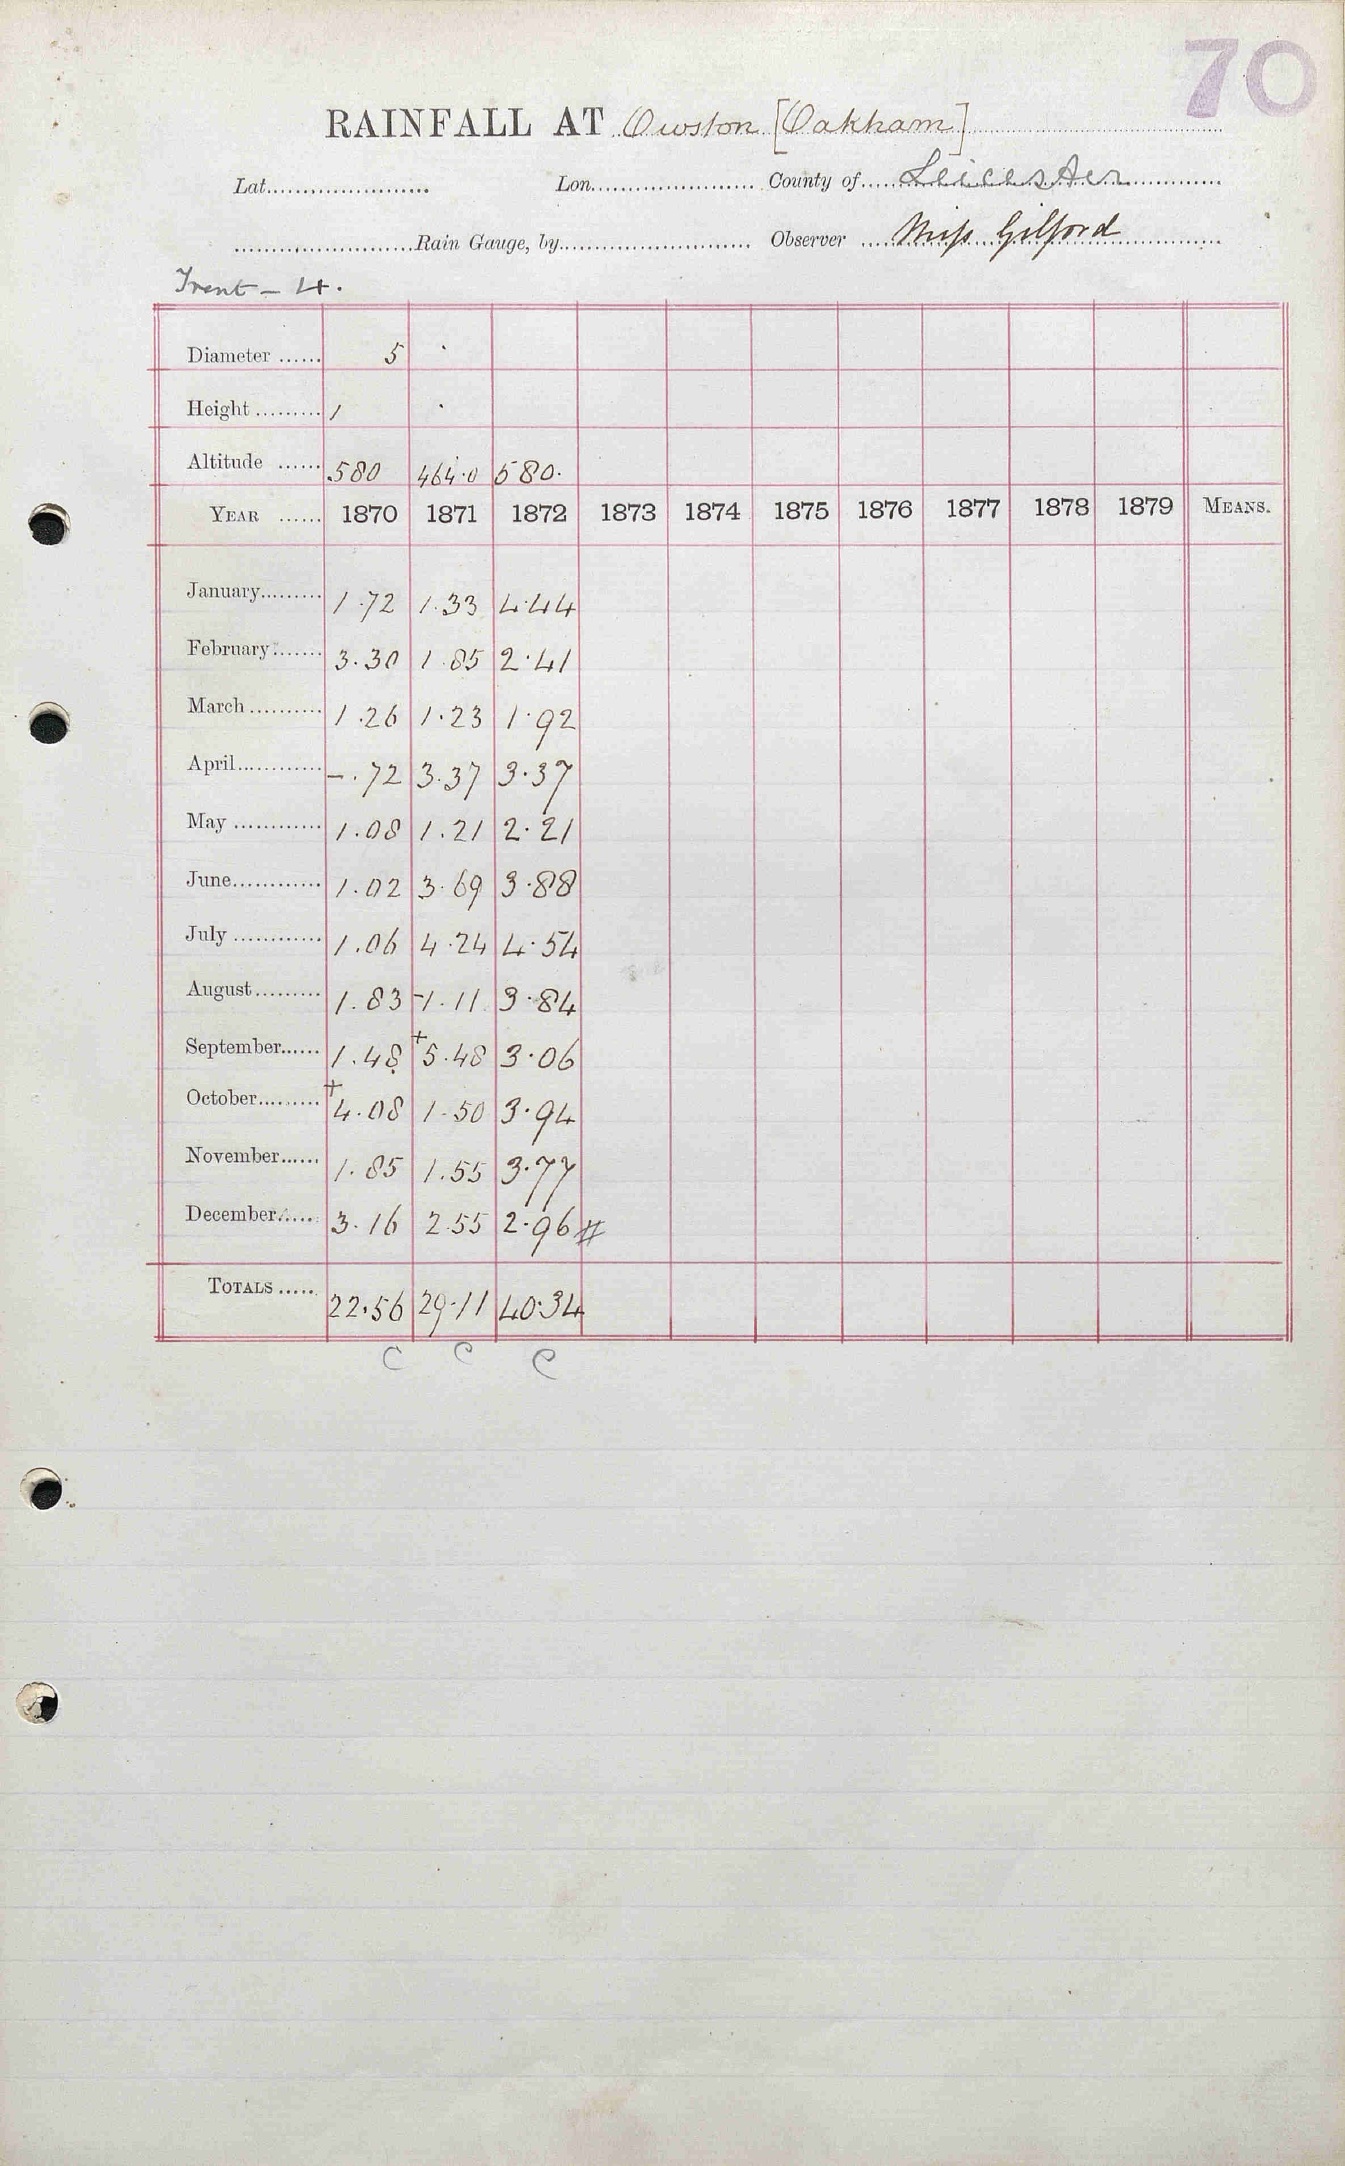 70
RAINFALL AT Owston [Oakham]
Lat. Lon. County of Leicester
Rain Gauge, by Observer Miss Gilford
Trent - 4.
Diameter 5
Height 1
Altitude 580 464.0 580.
YEAR 1870 1871 1872 1873 1874 1875 1876 1877 1878 1879 MEANS.
January 1.72 1.33 4.44
February 3.30 1.85 2.41
March 1.26 1.23 1.92
April -.72 3.37 3.37
May 1.08 1.21 2.21
June 1.02 3.69 3.88
July 1.06 4.24 4.54
August 1.83 -1.11 3.84
September 1.48 +5.48 3.06
October +4.08 1.50 3.94
November 1.85 1.55 3.77
December 3.16 2.55 2.96 #
TOTALS 22.56 29.11 40.34
C C C